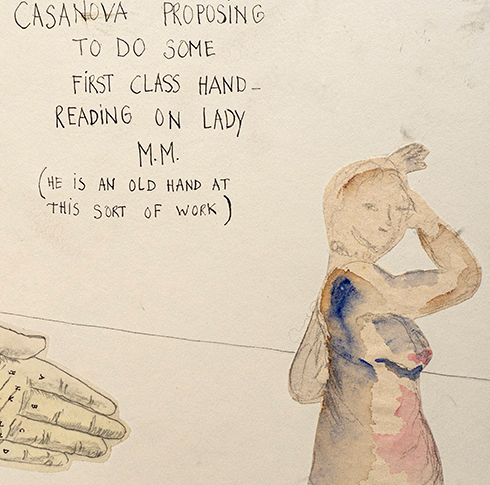 CASANOVA PROPOSING
TO DO SOME
FIRST CLASS HAND-
READING ON LADY
M.M.
(HE IS AN OLD HAND AT
THIS SORT OF WORK)
A
B
C
D